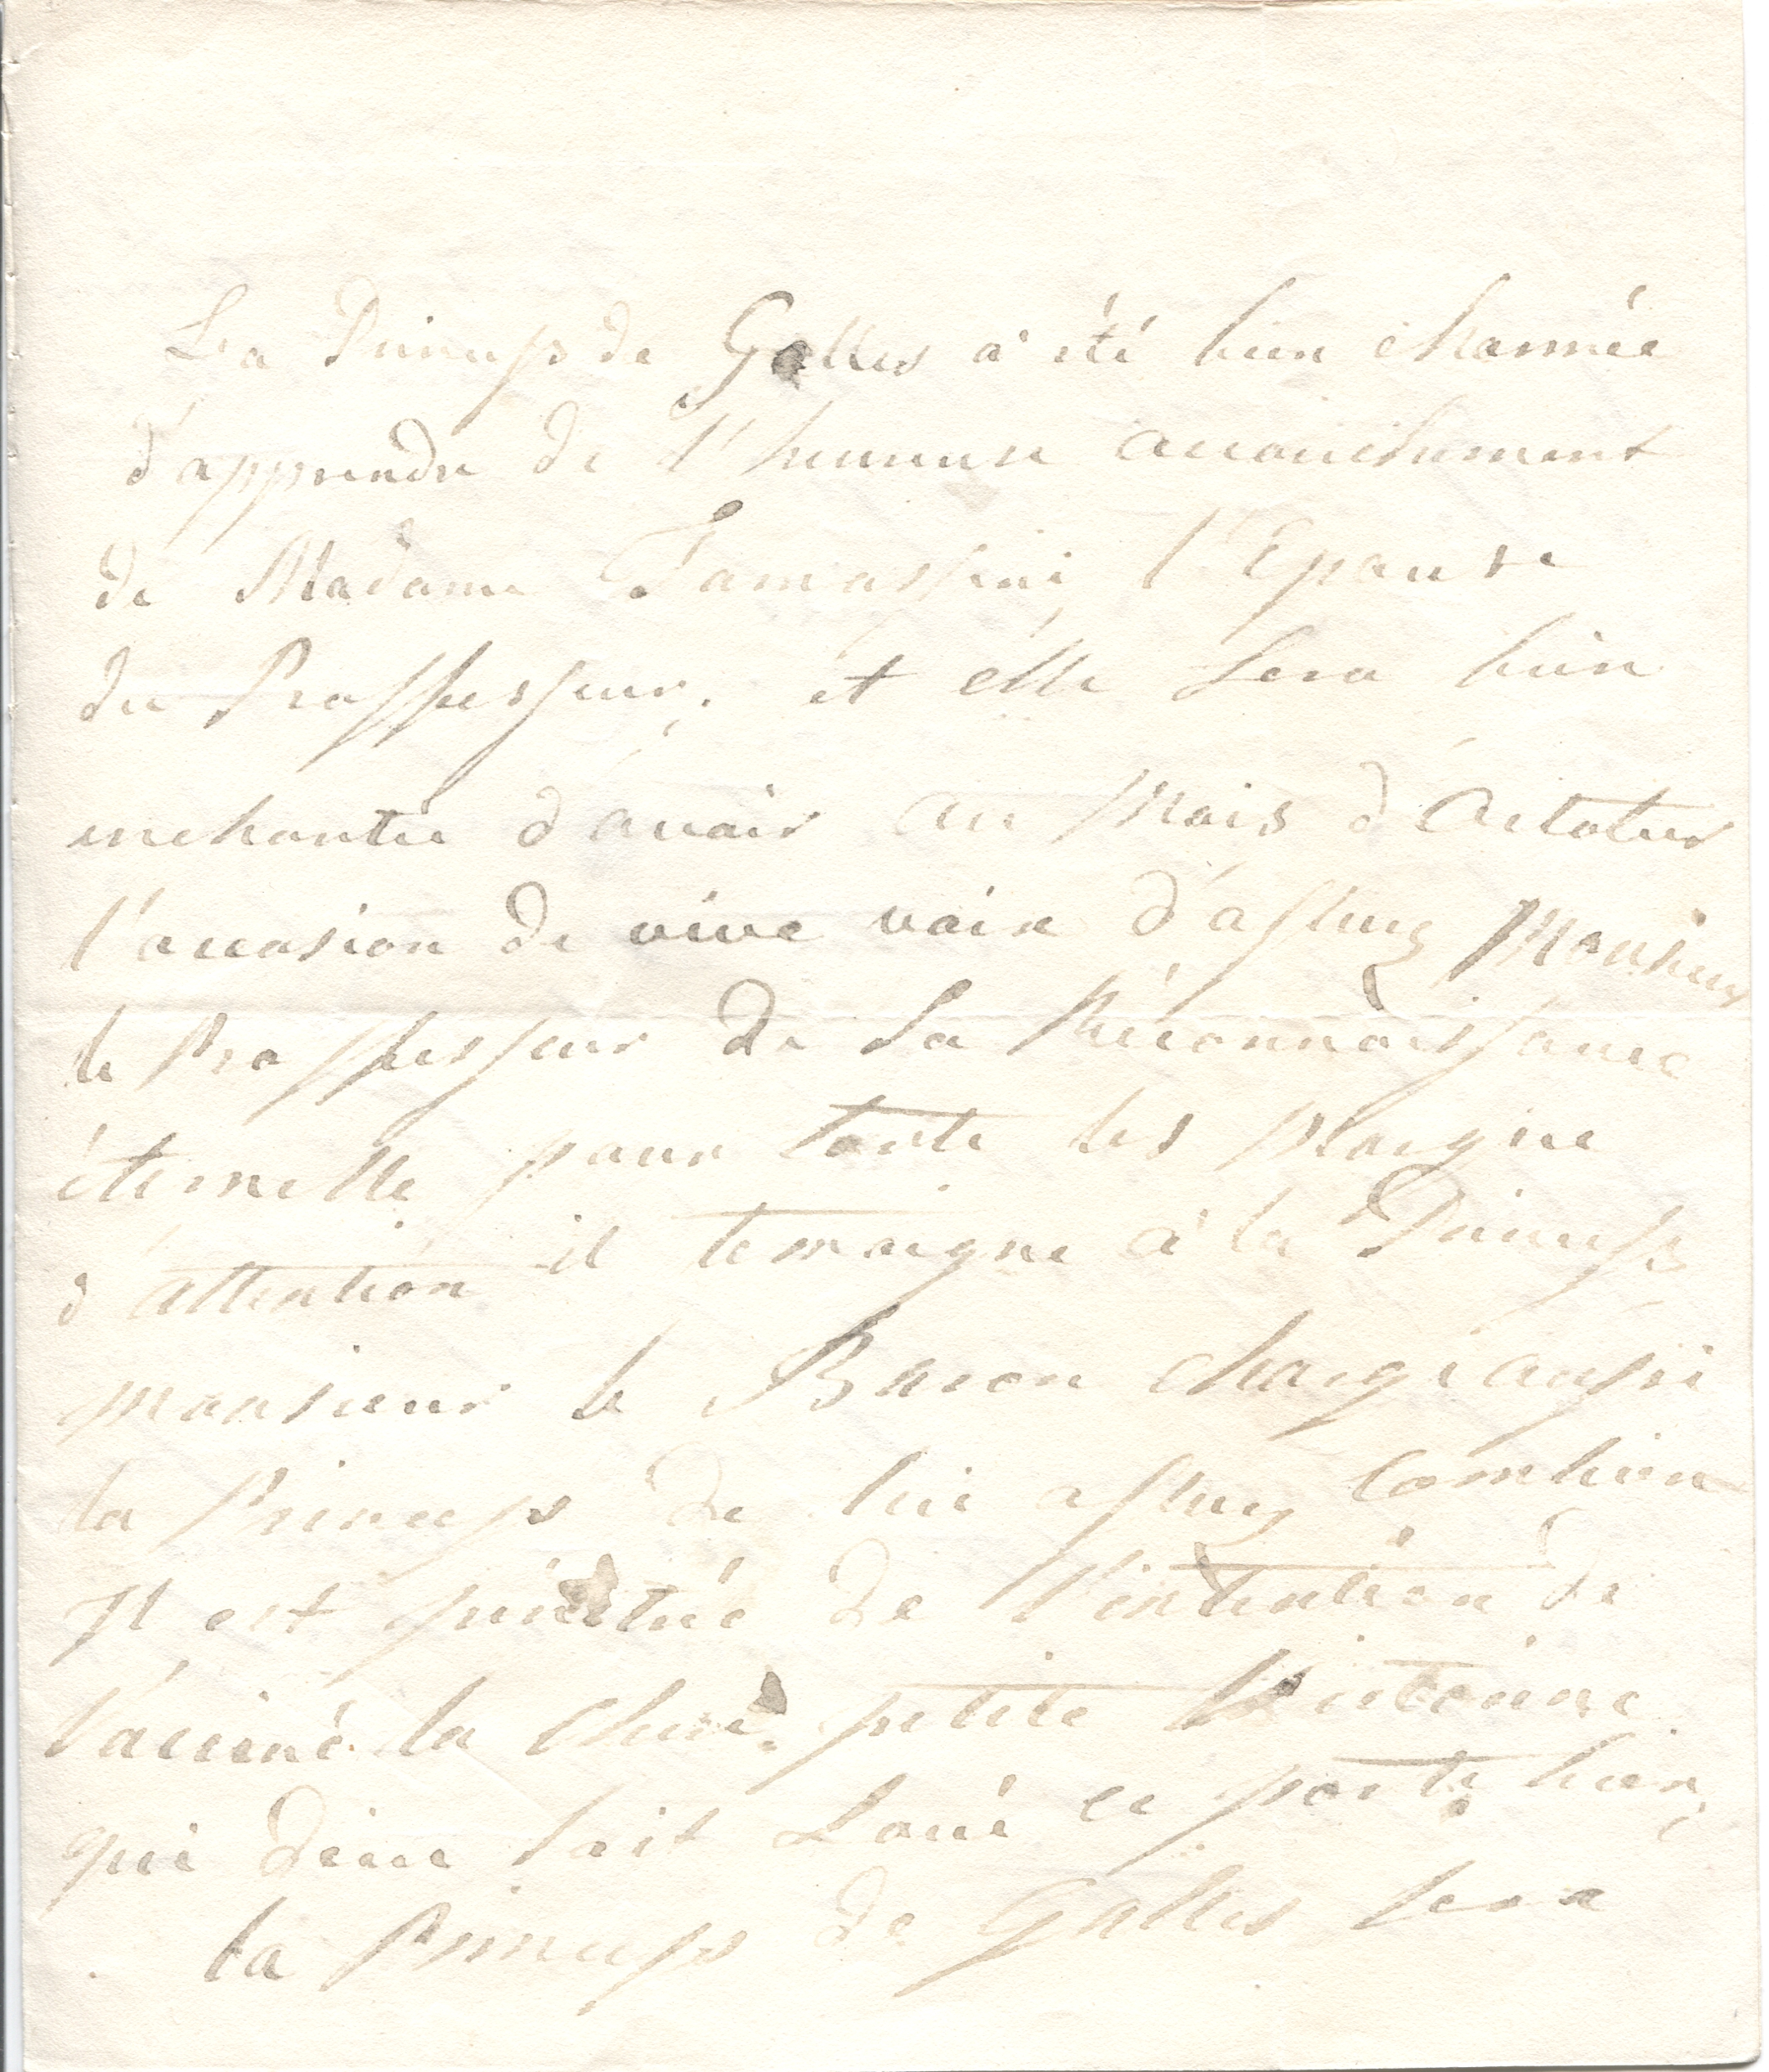 La Princess de Galles a été bien charmée
d'apprendre de l'heureuse accouchement
de Madame Tamassini, l'Epouse
du Proffesseur, et elle sera bien
enchantée d'avoir au Mois d'Octobre
l'occasion de vive voix d'assurez Monsieur
le Proffesseur de sa Réconnoissance
éternelle pour toute les
d'attention il temoigne à la Princess
monsieur le Baron charge aussi
la Princess de lui assurez combien
Il est de l'intention de
la chere petite Victorine
qui dieue soit Loué ce porte bien,
la Princess de Galles sera